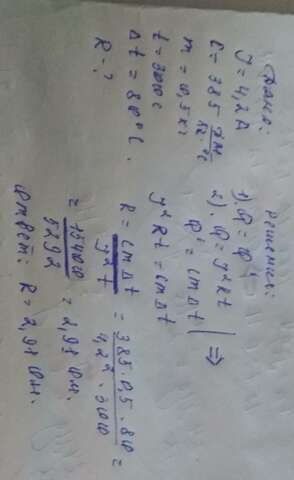 Дано:
J = 4,2 А
C = 385 Дж/кг·°С
m = 0,5 кг
t = 300 с
Δt = 80°C.
R - ?
Решение:
1). Q = Q'
2). Q = J²Rt
Q' = cmΔt | ⇒
J²Rt = cmΔt
R = cmΔt / J²t = 385·0,5·80 / 4,2²·300 =
= 15400 / 5292 = 2,98 Ом.
Ответ: R = 2,98 Ом.